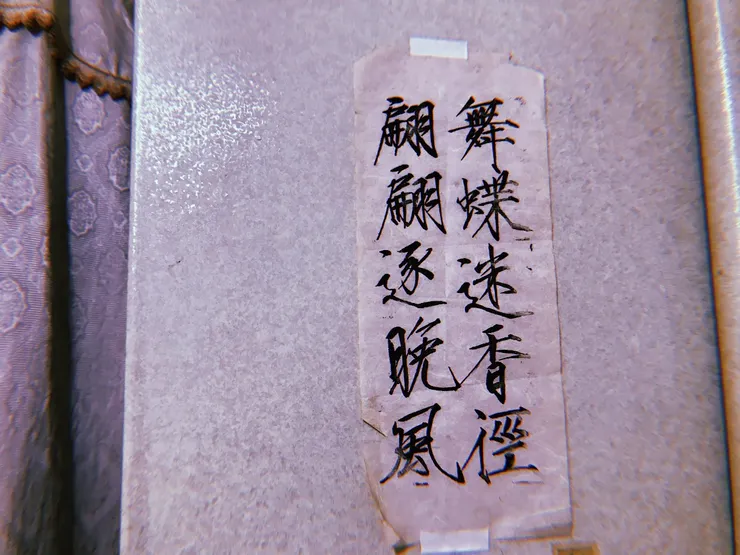 舞蝶迷香徑
翩翩逐晚風